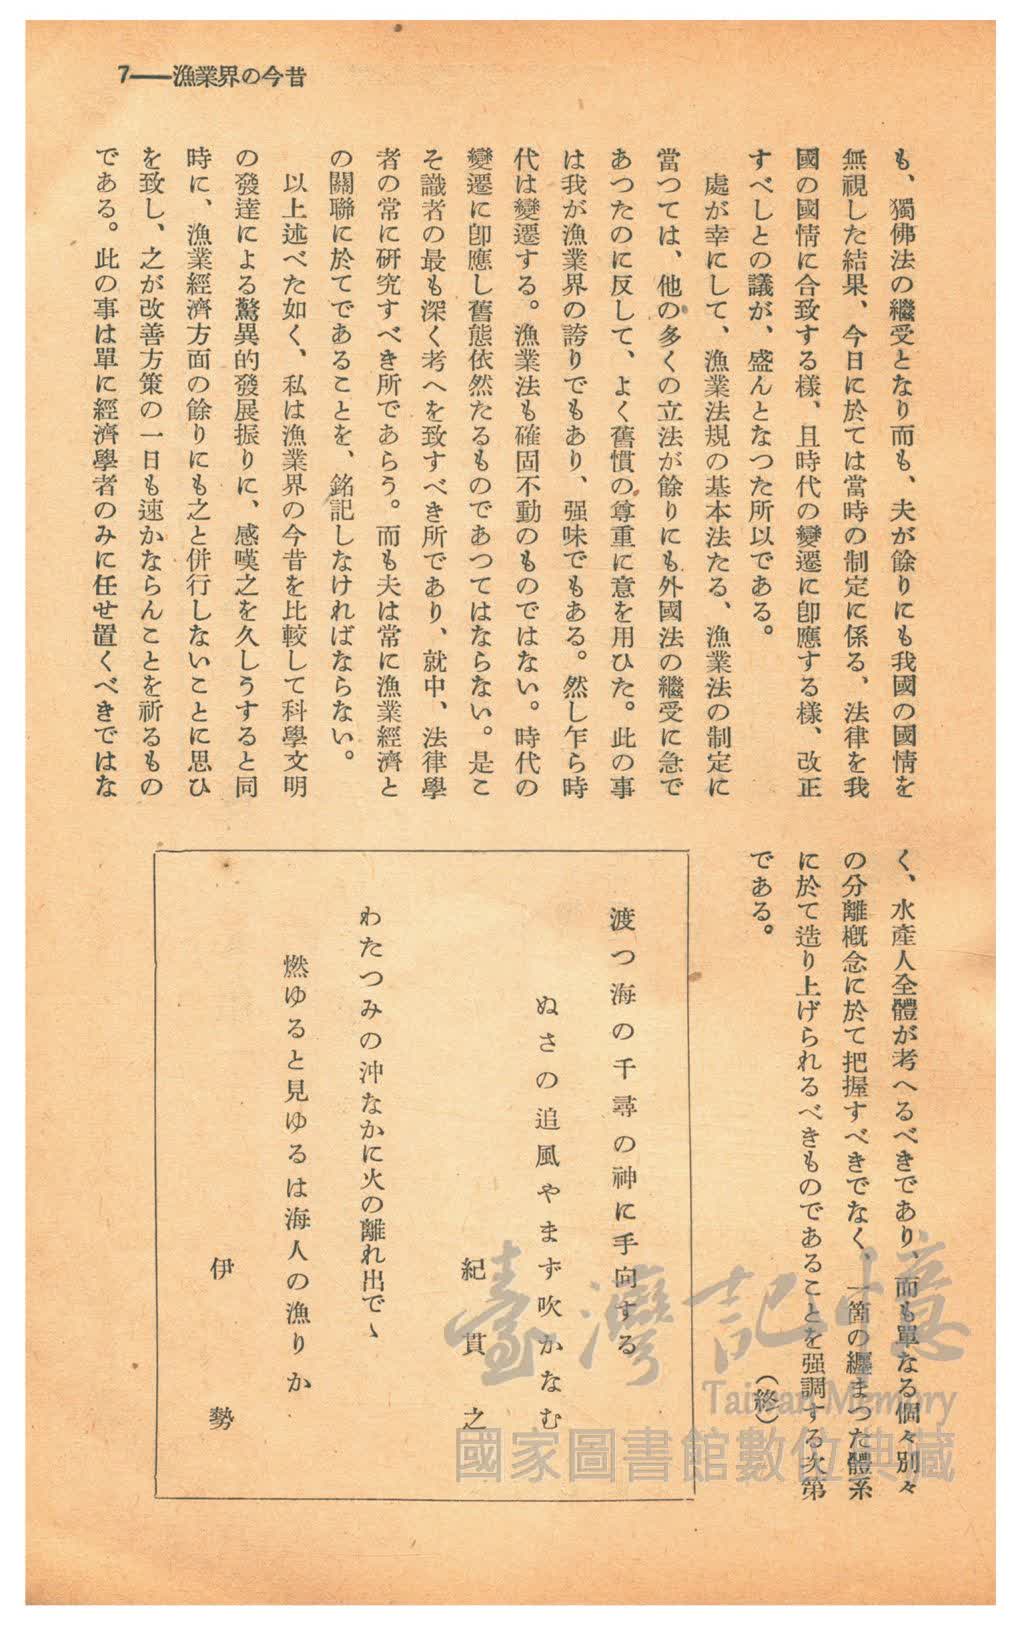 7——漁業界の今昔
も、獨佛法の繼受となり而も、夫が餘りにも我國の國情を
無視した結果、今日に於ては當時の制定に係る、法律を我
國の國情に合致する樣、且時代の變遷に卽應する樣、改正
すべしとの議が、盛んとなつた所以である。
處が幸にして、漁業法規の基本法たる、漁業法の制定に
當つては、他の多くの立法が餘りにも外國法の繼受に急で
あつたのに反して、よく舊慣の尊重に意を用ひた。此の事
は我が漁業界の誇りでもあり、强味でもある。然し乍ら時
代は變遷する。漁業法も確固不動のものではない。時代の
變遷に卽應し舊態依然たるものであつてはならない。是こ
そ識者の最も深く考へを致すべき所であり、就中、法律學
者の常に硏究すべき所であらう。而も夫は常に漁業經濟と
の關聯に於てであることを、銘記しなければならない。
以上述べた如く、私は漁業界の今昔を比較して科學文明
の發達による驚異的發展振りに、感嘆之を久しうすると同
時に、漁業經濟方面の餘りにも之と併行しないことに思ひ
を致し、之が改善方策の一日も速かならんことを祈るもの
である。此の事は單に經濟學者のみに任せ置くべきではな
く、水產人全體が考へるべきであり、而も單なる個々別々
の分離槪念に於て把握すべきでなく、一箇の纒まつた體系
に於て造り上げられるべきものであることを强調する次第
である。
（終）
渡つ海の千尋の神に手向する
ぬさの追風やまず吹かなむ
紀貫之
わたつみの沖なかに火の離れ出でゝ
燃ゆると見ゆるは海人の漁りか
伊勢
臺灣記憶
Taiwan Memory
國家圖書館數位典藏